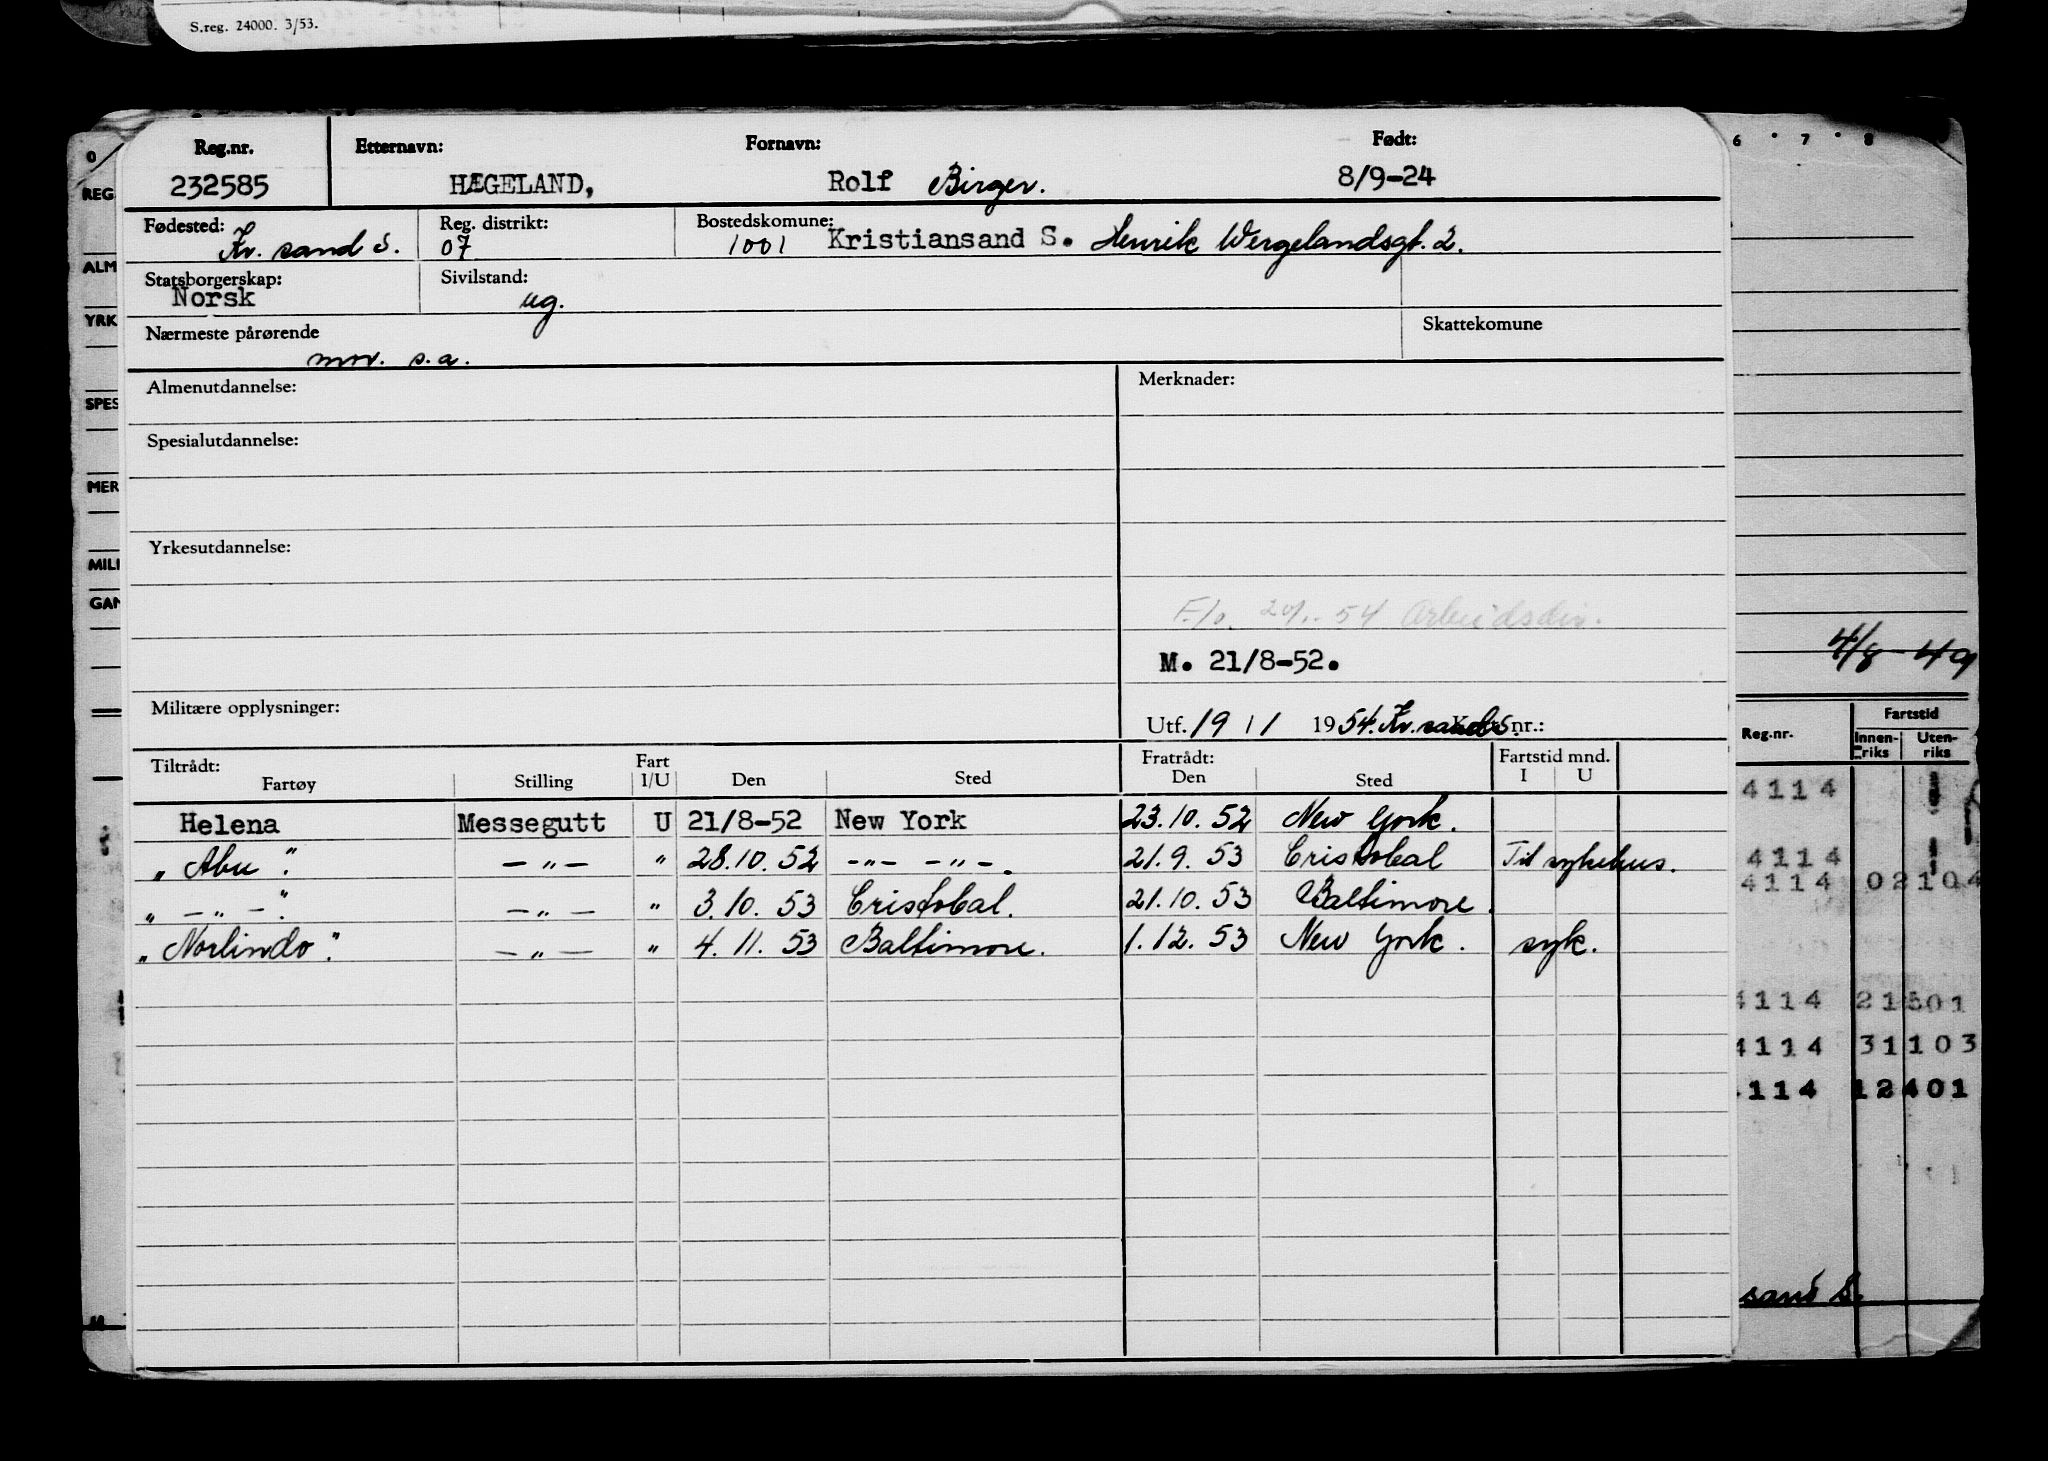 S.reg. 24000. 3/53.
Reg.nr. Etternavn: Fornavn: Født:
232585 HÆGELAND, Rolf Birger. 8/9-24
Fødested: Reg. distrikt: Bostedskomune:
Kr. sand S. 07 1001 Kristiansand S. Henrik Wergelandsgt. 2.
Statsborgerskap: Sivilstand:
Norsk ug.
Nærmeste pårørende Skattekomune
mor. s.a.
Almenutdannelse: Merknader:
Spesialutdannelse:
Yrkesutdannelse:
54 Arbeidsdir.
M. 21/8-52.
Militære opplysninger: Utf. 19 / 1 1954. Kr.sand S. nr.:
Tiltrådt: Fart Fratrådt: Fartstid mnd.
Fartøy Stilling I/U Den Sted Den Sted I U
Helena Messegutt U 21/8-52 New York 23.10.52 New York.
„ Abu ". — „ — " 28.10.52 -„- -„-. 21.9.53 Cristobal Til sykehus.
„ — „ — ". — „ — " 3.10.53 Cristobal. 21.10.53 Baltimore.
„ Norlindo ". — „ — " 4.11.53 Baltimore. 1.12.53 New York. syk.
O
REG
ALM
YRK
SPES
MER
MILI
GAN
6 7 8
4/8-49
Fartstid
Reg.nr. Innen-riks Uten-riks
4114
4114
4114 02104
4114 21501
4114 31103
114 12401
sand S.